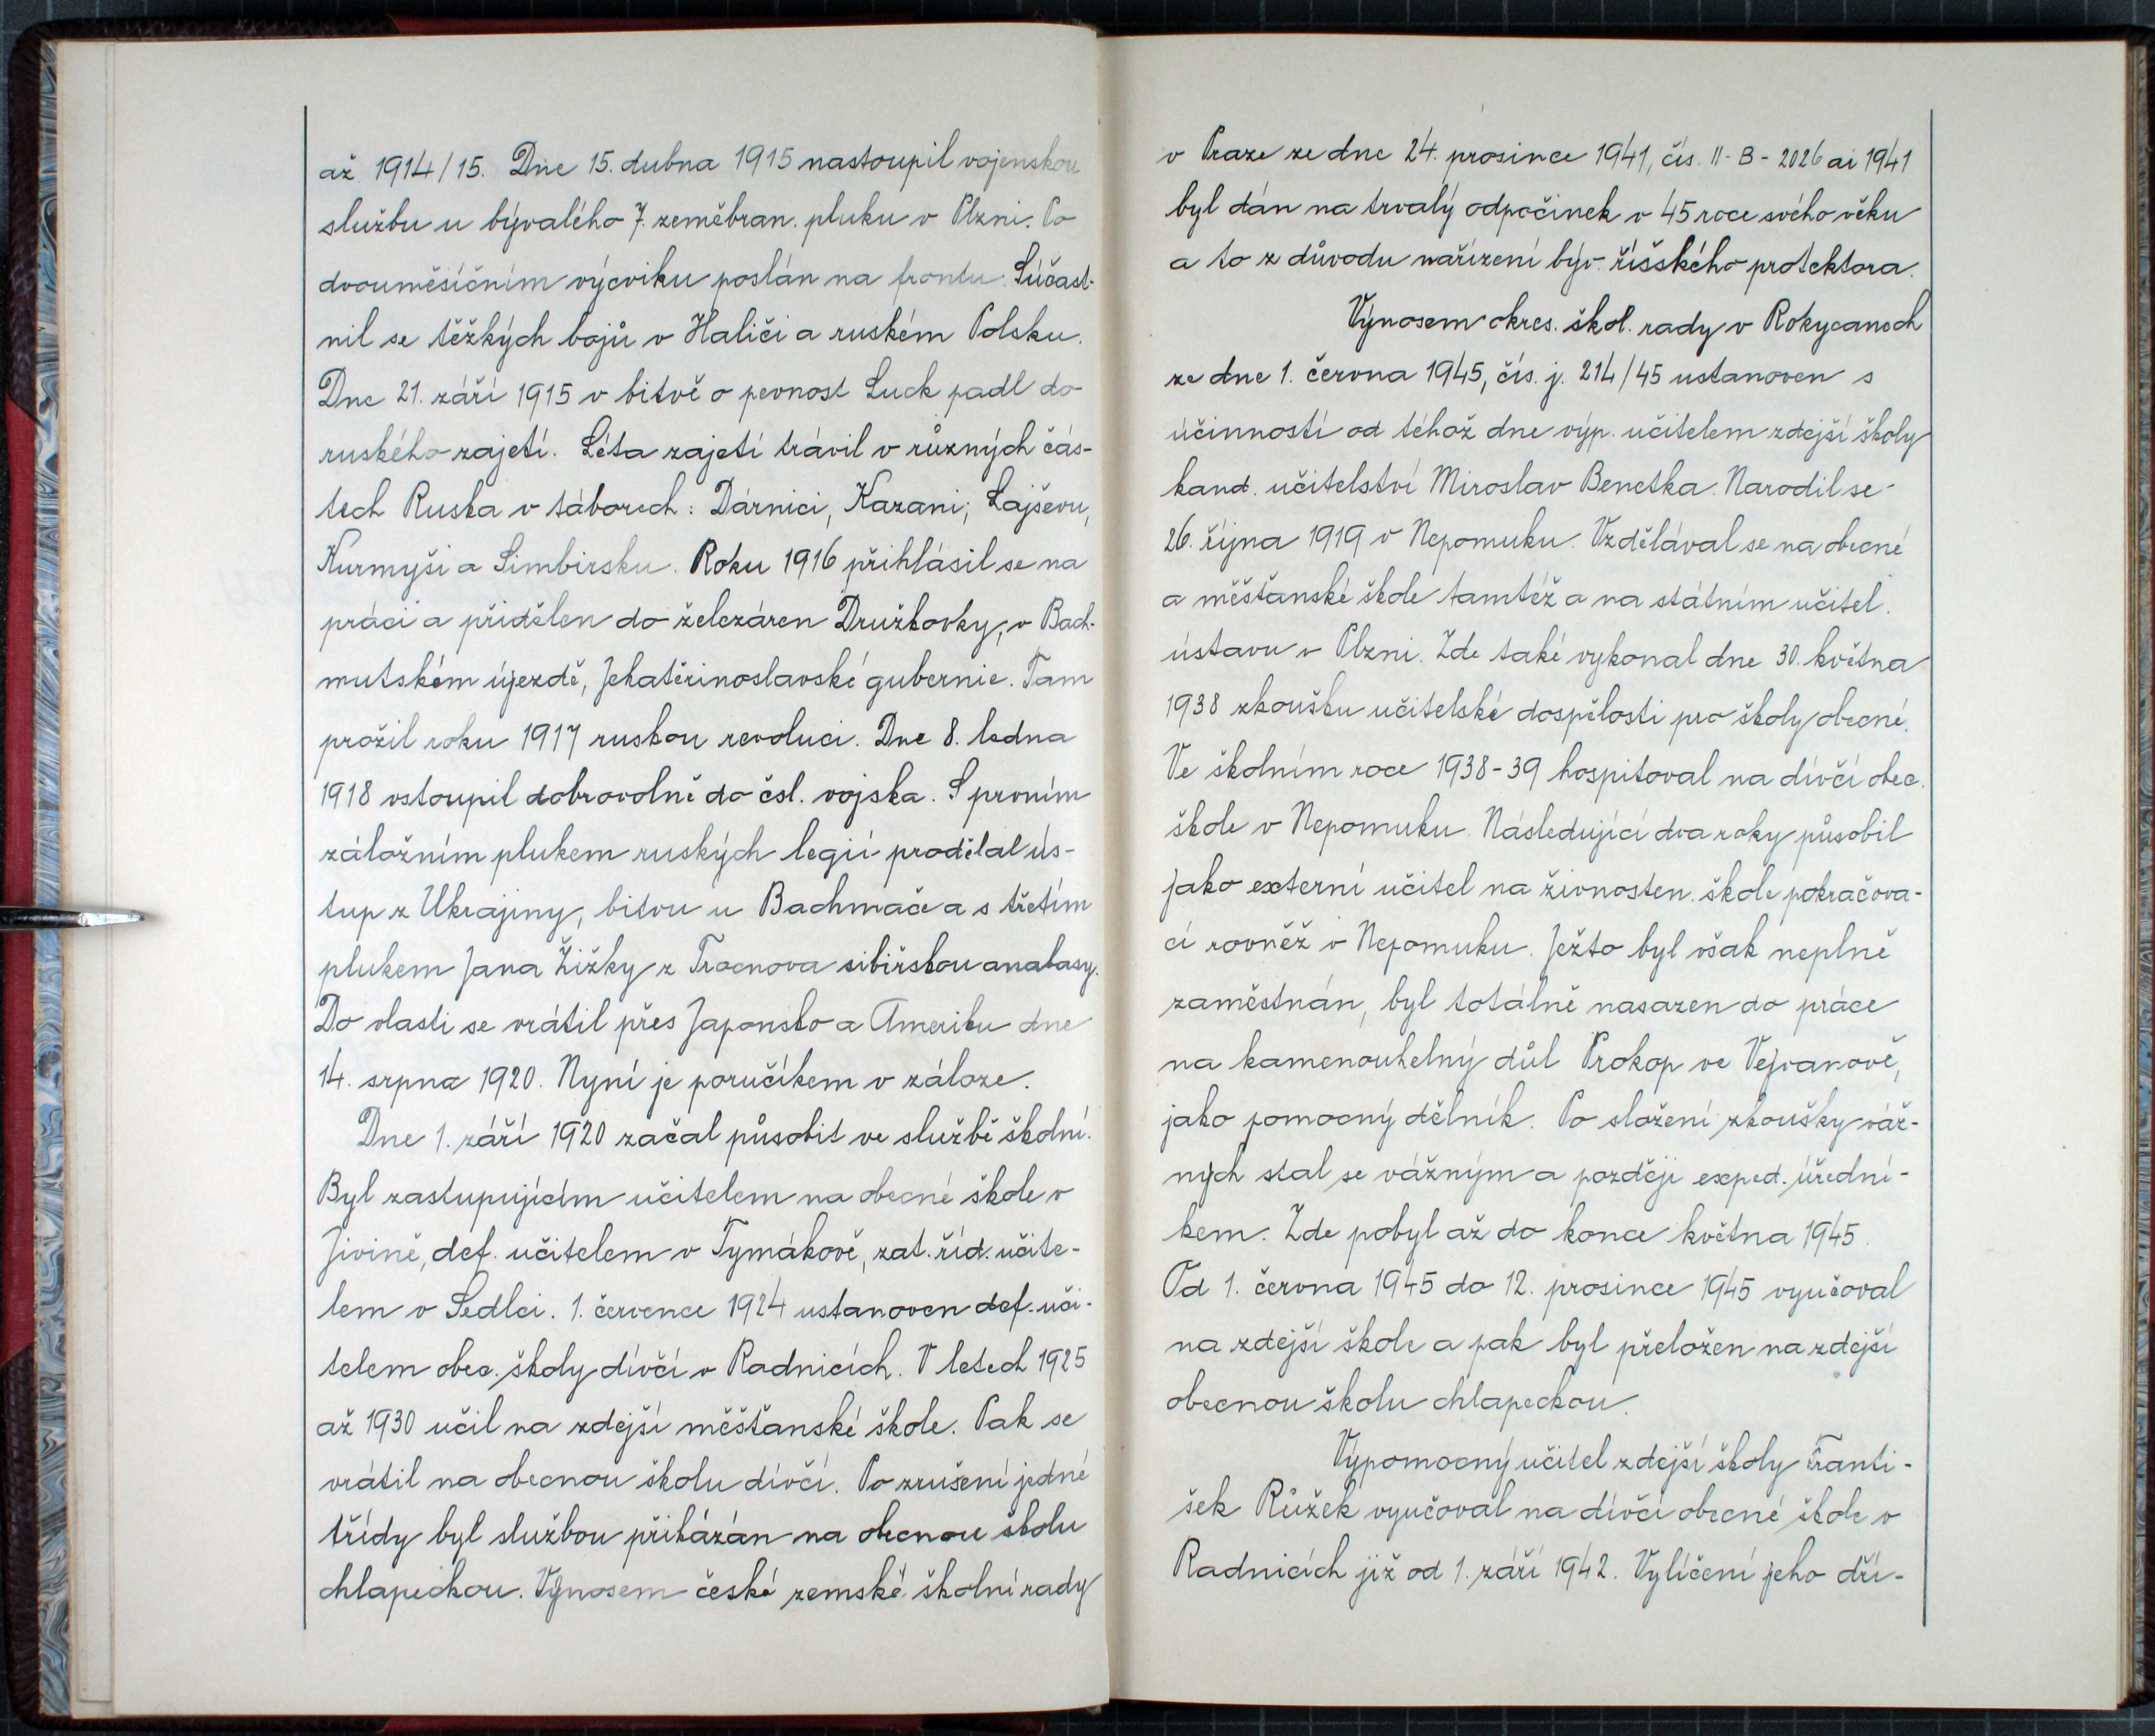 až 1914/15. Dne 15. dubna 1915 nastoupil vojenskou
službu u bývalého 7. zeměbran. pluku v Plzni. Po
dvouměsíčním výcviku poslán na frontu. Súčast-
nil se těžkých bojů v Haliči a ruském Polsku.
Dne 21. září 1915 v bitvě o pevnost Luck padl do
ruského zajetí. Léta zajetí trávil v různých čás-
tech Ruska v táborech: Dárnici, Kazani, Lajševu,
Kurmyši a Simbirsku. Roku 1916 přihlásil se na
práci a přidělen do železáren Družkovky, v Bach-
mutském újezdě, Jekatěrinoslavské gubernie. Tam
prožil roku 1917 ruskou revoluci. Dne 8. ledna
1918 vstoupil dobrovolně do čsl. vojska. S prvním
záložním plukem ruských legií prodělal ús-
tup z Ukrajiny, bitvu u Bachmače a s třetím
plukem Jana Žižky z Trocnova sibiřskou anabasy.
Do vlasti se vrátil přes Japonsko a Ameriku dne
14. srpna 1920. Nyní je poručíkem v záloze.
Dne 1. září 1920 začal působit ve službě školní.
Byl zastupujícím učitelem na obecné škole v
Jivině, def. učitelem v Tymákově, zat. říd. učite-
lem v Sedlci. 1. července 1924 ustanoven def. uči-
telem obec. školy dívčí v Radnicích. V letech 1925
až 1930 učil na zdejší měšťanské škole. Pak se
vrátil na obecnou školu dívčí. Po zrušení jedné
třídy byl službou přikázán na obecnou školu
chlapeckou. Výnosem české zemské školní rady
v Praze ze dne 24. prosince 1941, čís. II-B-2026 ai 1941
byl dán na trvalý odpočinek v 45 roce svého věku
a to z důvodu nařízení býv. říšského protektora.
Výnosem okres. škol. rady v Rokycanech
ze dne 1. června 1945, čís. j. 214/45 ustanoven s
účinností od téhož dne výp. učitelem zdejší školy
kand. učitelství Miroslav Benetka. Narodil se
26. října 1919 v Nepomuku. Vzdělával se na obecné
a měšťanské škole tamtéž a na státním učitel.
ústavu v Plzni. Zde také vykonal dne 30. května
1938 zkoušku učitelské dospělosti pro školy obecné.
Ve školním roce 1938-39 hospitoval na dívčí obec.
škole v Nepomuku. Následující dva roky působil
jako externí učitel na živnosten. škole pokračova-
cí rovněž v Nepomuku. Ježto byl však neplně
zaměstnán, byl totálně nasazen do práce
na kamenouhelný důl Prokop ve Vejvanově,
jako pomocný dělník. Po složení zkoušky váž-
ných stal se vážným a později exped. úřední-
kem. Zde pobyl až do konce května 1945.
Od 1. června 1945 do 12. prosince 1945 vyučoval
na zdejší škole a pak byl přeložen na zdejší
obecnou školu chlapeckou.
Výpomocný učitel zdejší školy Franti-
šek Růžek vyučoval na dívčí obecné škole v
Radnicích již od 1. září 1942. Vylíčení jeho dří-